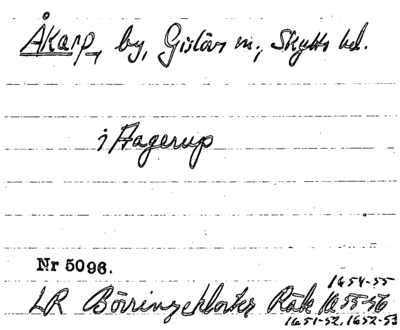 Åkarp, by, Gislövs sn., Skytts hd.
i Aagerup
Nr 5096.
1654-55
LR Börringekloster Räk 1655-56
1651-52, 1652-53